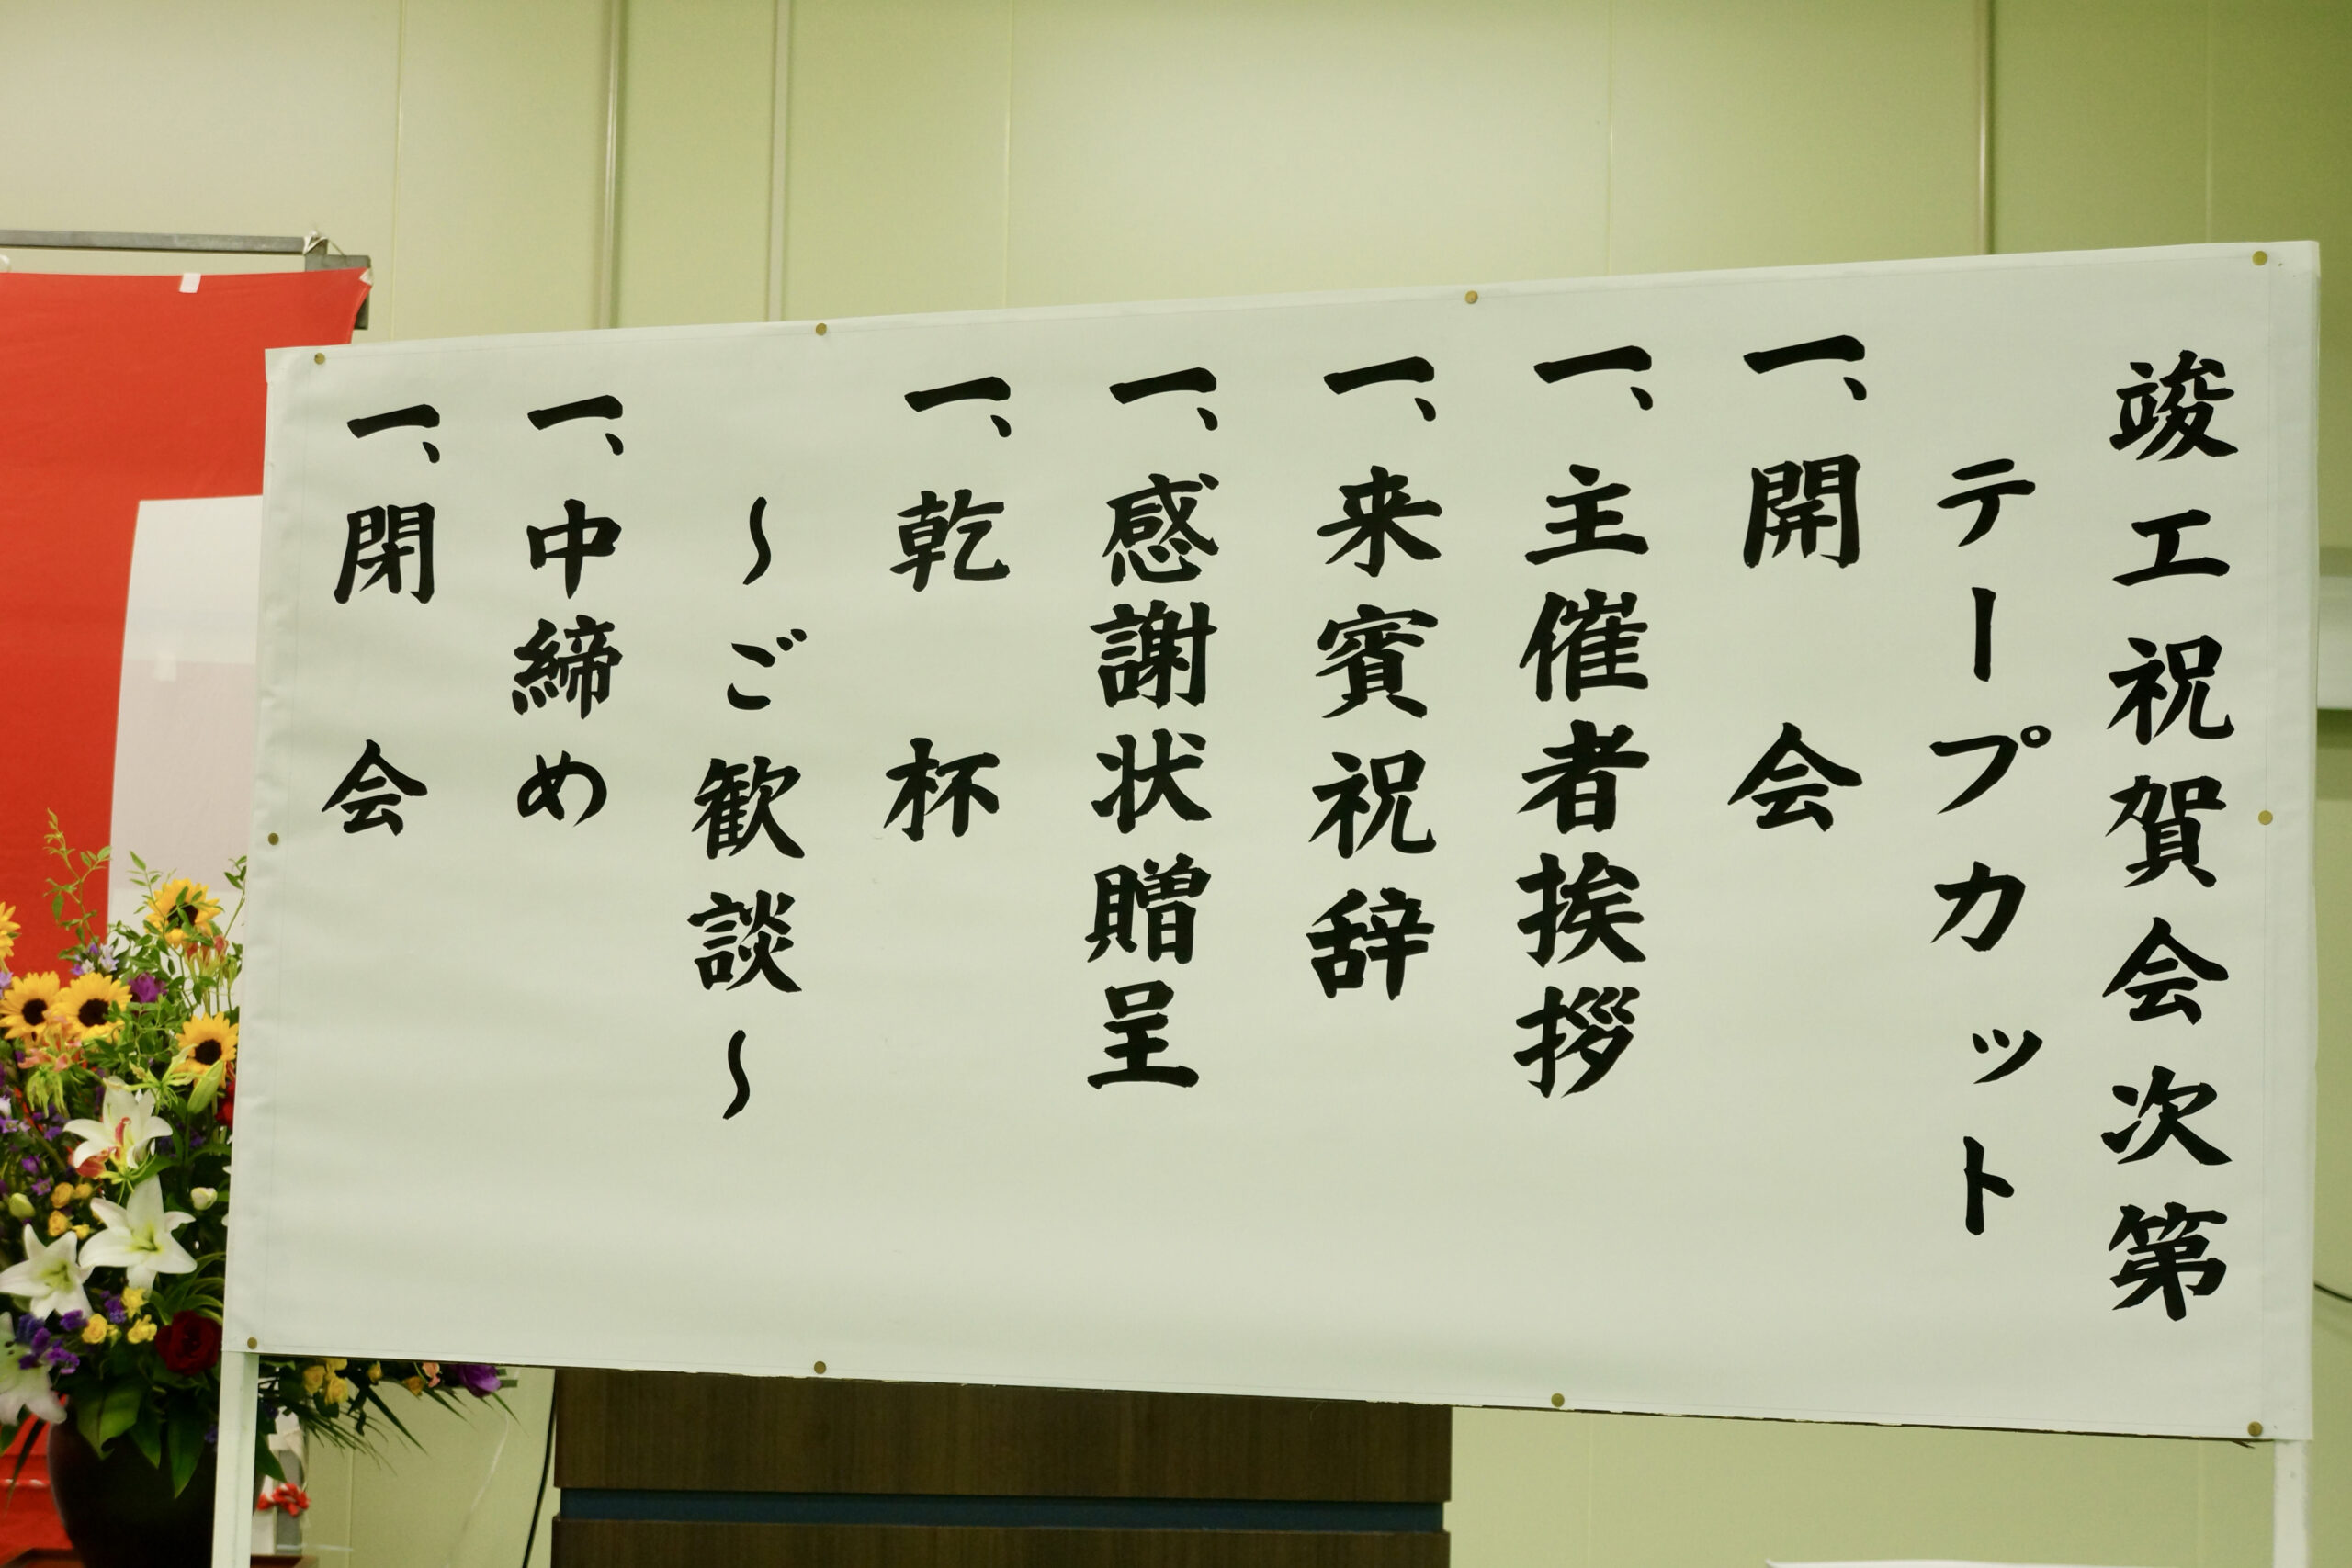 竣工祝賀会次第
テープカット
一、開会
一、主催者挨拶
一、来賓祝辞
一、感謝状贈呈
一、乾杯
～ご歓談～
一、中締め
一、閉会